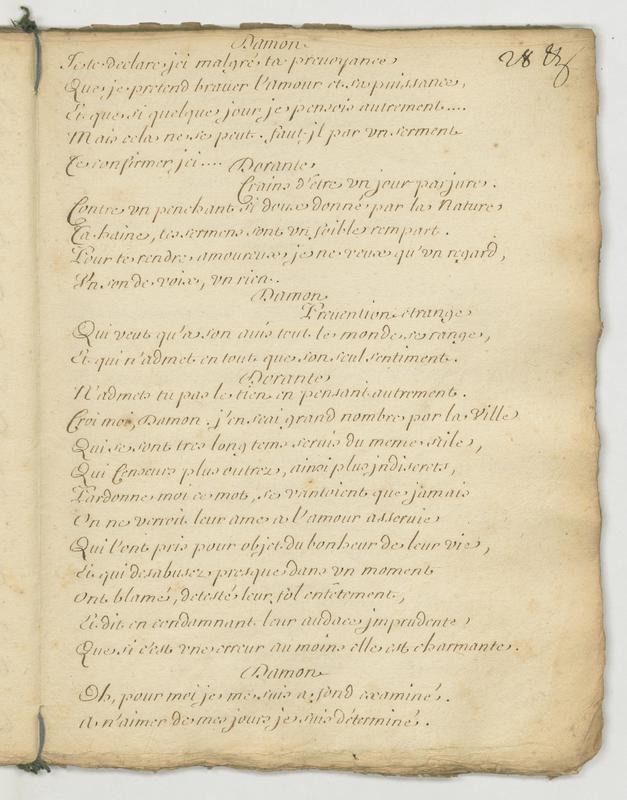 Damon
Je te declare jci malgré ta prevoyance
Que je pretend braver l'amour et sa puissance,
Et que si quelque jour je pensois autrement....
Mais cela ne se peut. faut-jl par vn serment
Te confirmer jci.... Dorante
Crains d'être vn jour parjure.
Contre vn penchant si doux donné par la Nature
Ta haine, tes sermens sont vn foible rempart.
Pour te rendre amoureux je ne veux qu'vn regard,
Vn son de voix, vn rien.
Damon
Prevention etrange
Qui veut qu'a son avis tout le monde se range,
Et qui n'admet en tout que son seul sentiment.
Dorante
N'admets tu pas le tien en pensant autrement.
Croi moi, Damon. j'en scai grand nombre par la Ville
Qui se sont tres long tems servis du meme stile,
Qui Censeurs plus outrez, ainsi plus jndiscrets,
Pardonne moi ce mot, se vantoient que jamais
On ne verroit leur ame a l'amour asservie
Qui l'ont pris pour objet du bonheur de leur vie,
Et qui desabusez presque dans vn moment
Ont blamé, detesté leur fol entêtement,
Et dit en condamnant leur audace jmprudente
Que si c'est vne erreur au moins elle est charmante.
Damon
Oh, pour moi je me suis a fond examiné.
A n'aimer de mes jours je suis déterminé.